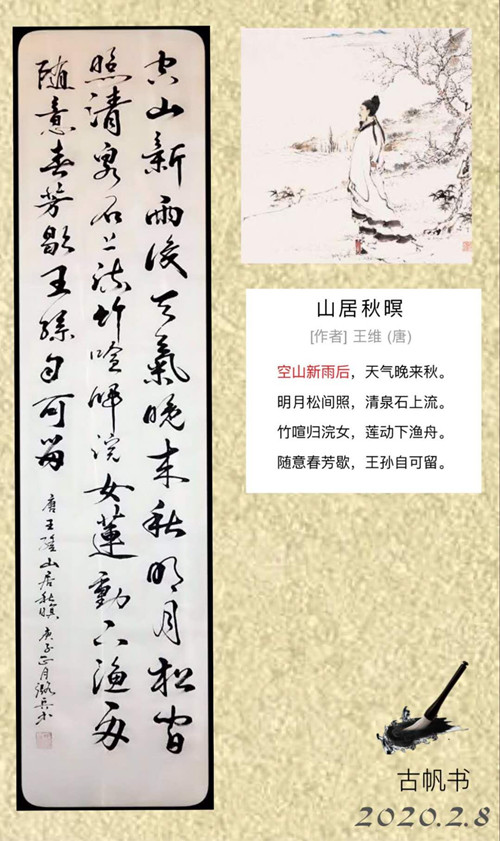 空山新雨後天氣晚来秋明月松間
照清泉石上流竹喧歸浣女蓮動下漁舟
随意春芳歇王孫自可留
唐王維山居秋暝 庚子正月
山居秋暝
[作者] 王维 (唐)
空山新雨后，天气晚来秋。
明月松间照，清泉石上流。
竹喧归浣女，莲动下渔舟。
随意春芳歇，王孙自可留。
古帆书
2020.2.8